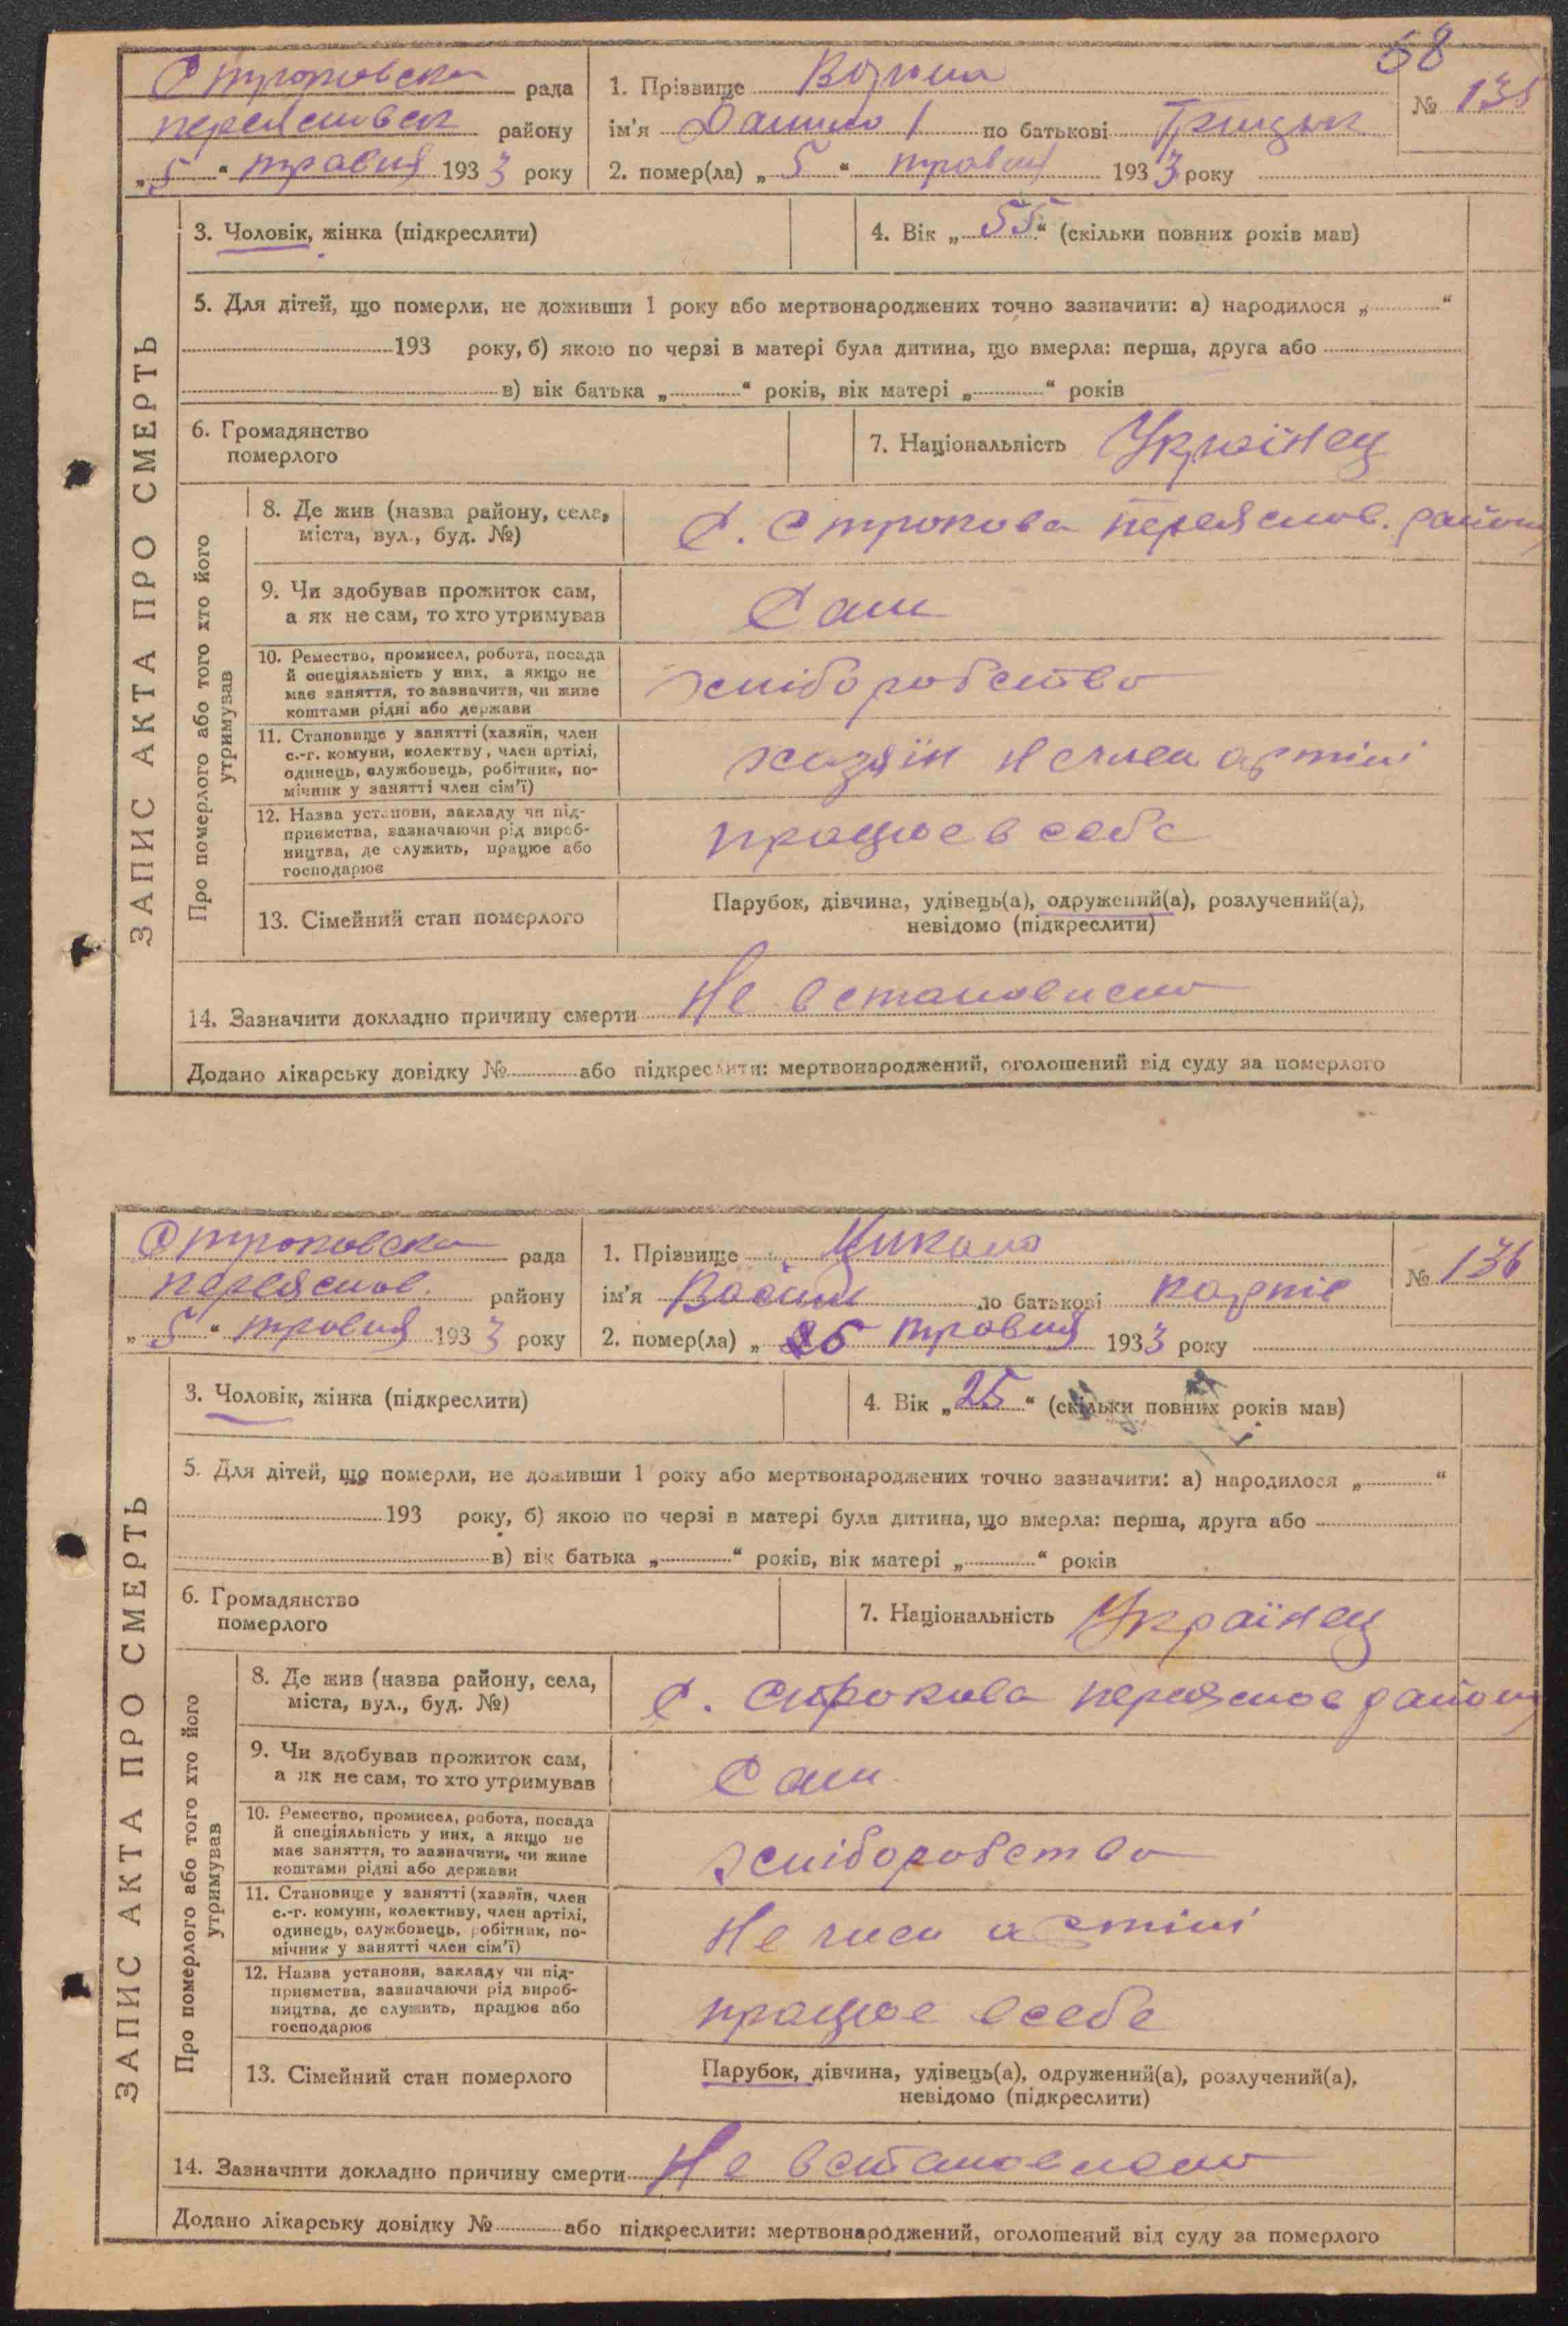 58
Строковска рада
переяславск району
„5“ травня 1933 року
1. Прізвище
ім'я Данило по батькові Грицьк
2. помер(ла) „5“ травня 1933 року
№ 135
ЗАПИС АКТА ПРО СМЕРТЬ
3. Чоловік, жінка (підкреслити)
4. Вік „55“ (скільки повних років мав)
5. Для дітей, що померли, не доживши 1 року або мертвонароджених точно зазначити: а) народилося „ “
193 року, б) якою по черзі в матері була дитина, що вмерла: перша, друга або
в) вік батька „ “ років, вік матері „ “ років
6. Громадянство
померлого
7. Національність Українец
Про померлого або того хто його
утримував
8. Де жив (назва району, села,
міста, вул., буд. №)
С. Строкова переяслав. району
9. Чи здобував прожиток сам,
а як не сам, то хто утримував
Сам
10. Ремество, промисел, робота, посада
й спеціяльність у них, а якщо не
має заняття, то зазначити, чи живе
коштами рідні або держави
хліборобство
11. Становище у занятті (хазяїн, член
с.-г. комуни, колектву, член артілі,
одинець, службовець, робітник, по-
мічник у занятті член сім'ї)
хазяїн не член артілі
12. Назва установи, закладу чи під-
приємства, зазначаючи рід вироб-
ництва, де служить, працює або
господарює
працює в себе
13. Сімейний стан померлого
Парубок, дівчина, удівець(а), одружений(а), розлучений(а),
невідомо (підкреслити)
14. Зазначити докладно причину смерти Не встановлено
Додано лікарську довідку № або підкреслити: мертвонароджений, оголошений від суду за померлого
Строковска рада
переяслав. району
„5“ травня 1933 року
1. Прізвище Цикало
ім'я Василь по батькові Карпів
2. помер(ла) „ 5 травня 1933 року
№ 136
ЗАПИС АКТА ПРО СМЕРТЬ
3. Чоловік, жінка (підкреслити)
4. Вік „25“ (скільки повних років мав)
5. Для дітей, що померли, не доживши 1 року або мертвонароджених точно зазначити: а) народилося „ “
193 року, б) якою по черзі в матері була дитина, що вмерла: перша, друга або
в) вік батька „ “ років, вік матері „ “ років
6. Громадянство
померлого
7. Національність Українец
Про померлого або того хто його
утримував
8. Де жив (назва району, села,
міста, вул., буд. №)
С. Строкова переяслав району
9. Чи здобував прожиток сам,
а як не сам, то хто утримував
Сам
10. Ремество, промисел, робота, посада
й спеціяльність у них, а якщо не
має заняття, то зазначити, чи живе
коштами рідні або держави
хліборобство
11. Становище у занятті (хазяїн, член
с.-г. комуни, колективу, член артілі,
одинець, службовець, робітник, по-
мічник у занятті член сім'ї)
Не член артілі
12. Назва установи, закладу чи під-
приємства, зазначаючи рід вироб-
ництва, де служить, працює або
господарює
працює в себе
13. Сімейний стан померлого
Парубок, дівчина, удівець(а), одружений(а), розлучений(а),
невідомо (підкреслити)
14. Зазначити докладно причину смерти Не встановлено
Додано лікарську довідку № або підкреслити: мертвонароджений, оголошений від суду за померлого